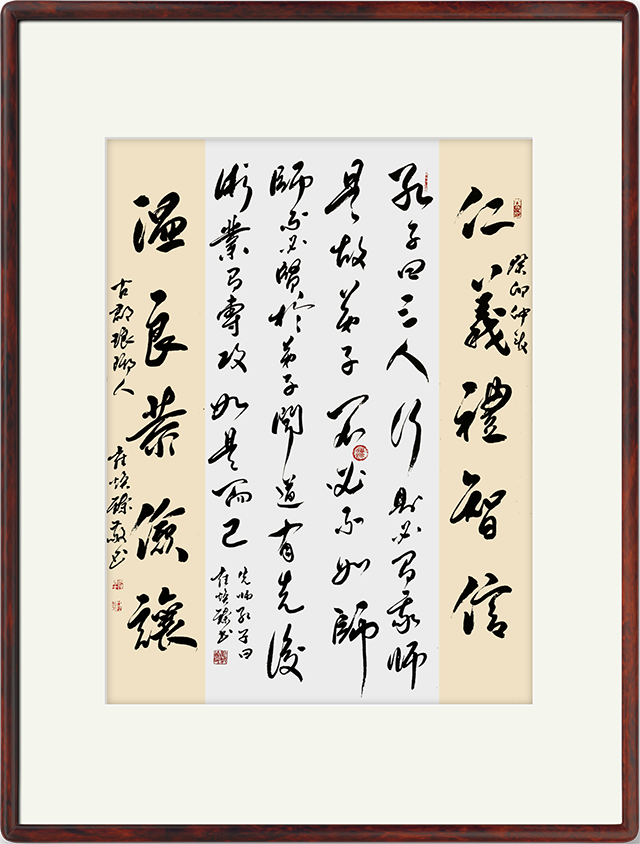 仁義禮智信
癸卯仲
孔子曰三人行則必有我師
是故弟子不必不如師
師不必賢於弟子聞道有先後
術業有專攻如是而已
先師孔子曰
书
温良恭儉讓
古郡琅琊人
敬书